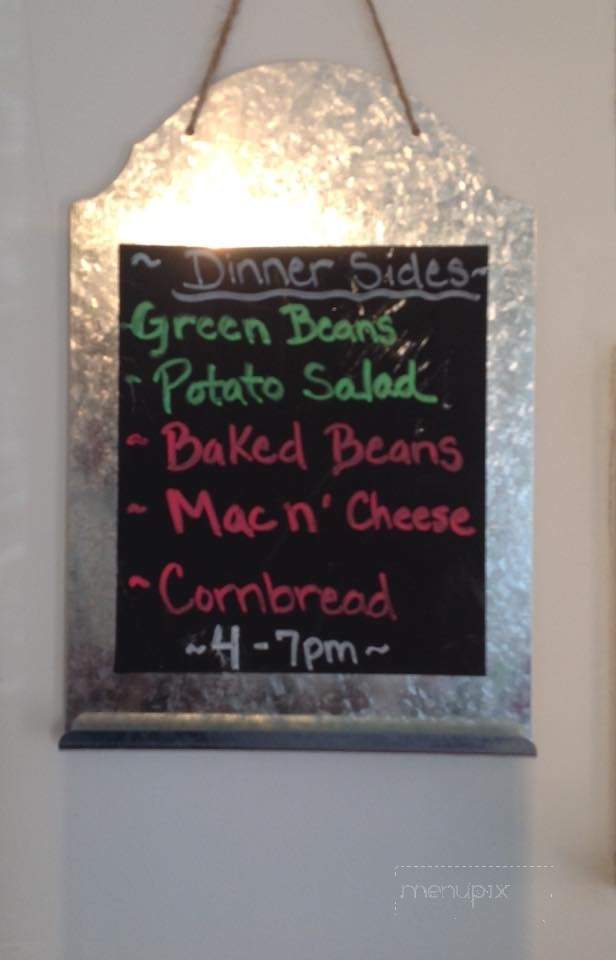 ~ Dinner Sides ~
~ Green Beans
~ Potato Salad
~ Baked Beans
~ Mac n' Cheese
~ Cornbread
~ 4 - 7pm ~
menupix